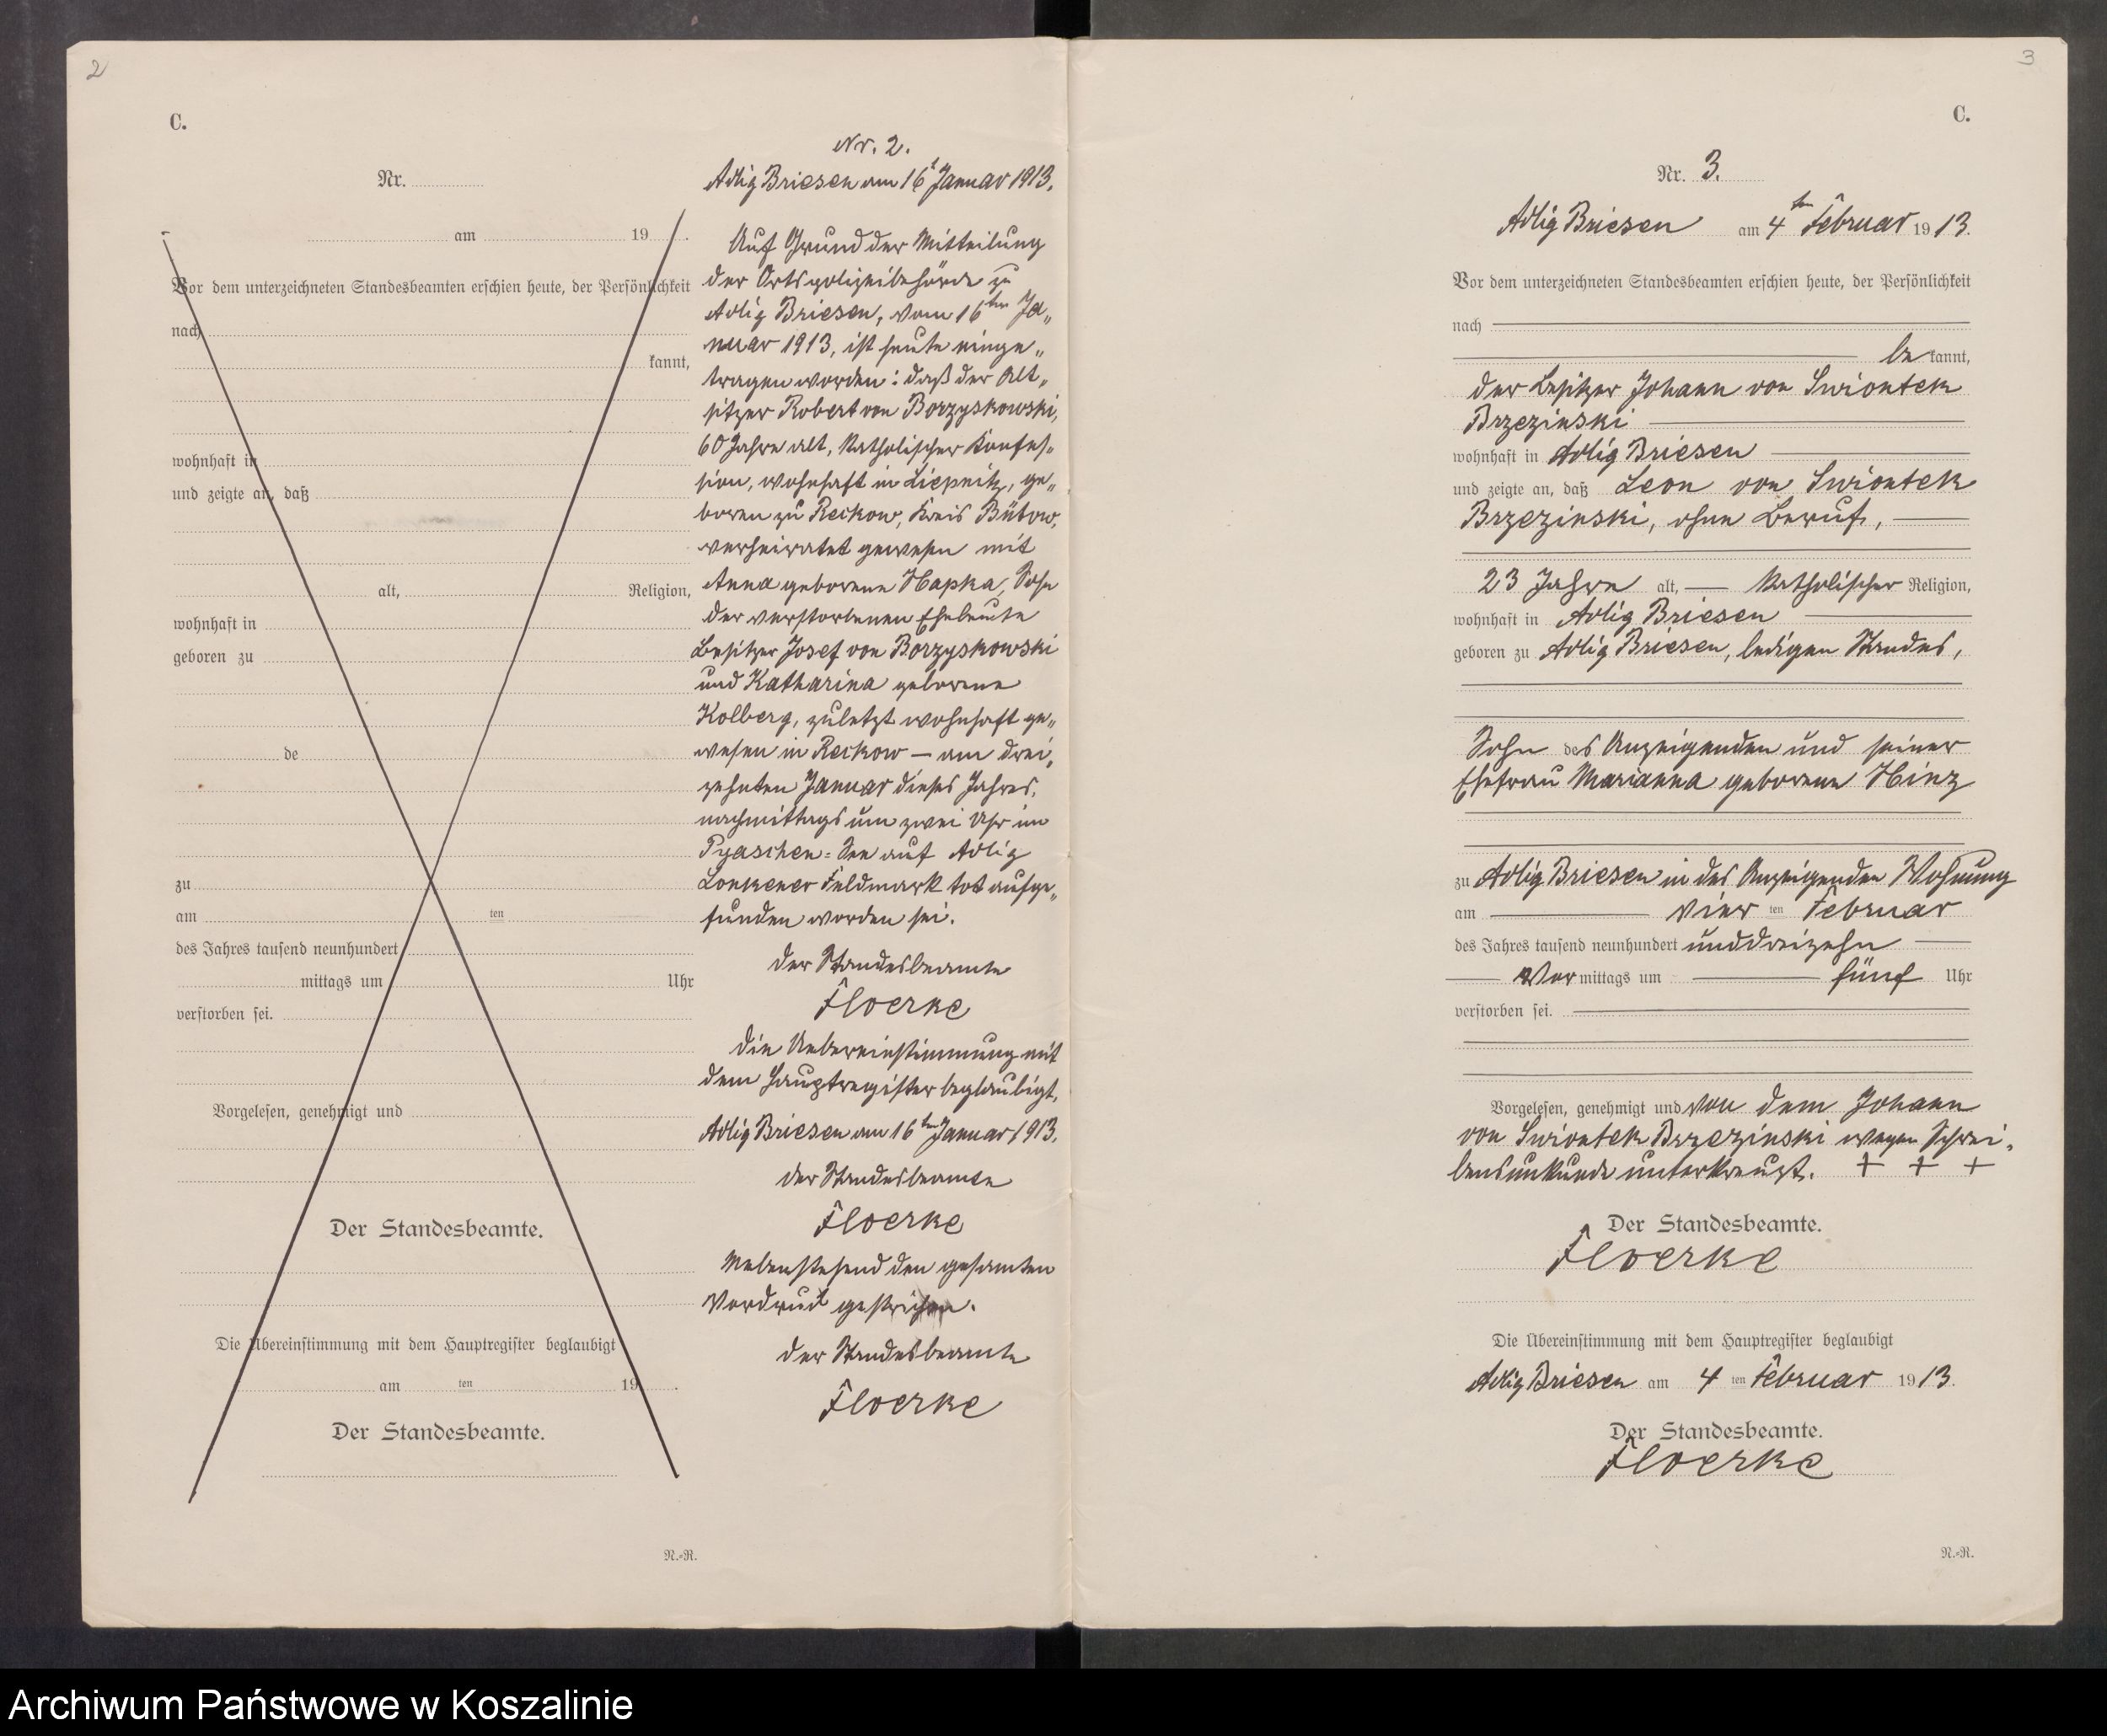 2
C.
Nr.
am 19 .
Vor dem unterzeichneten Standesbeamten erschien heute, der Persönlichkeit
nach
kannt,
wohnhaft in
und zeigte an, daß
alt, Religion,
wohnhaft in
geboren zu
de
zu
am ten
des Jahres tausend neunhundert
mittags um Uhr
verstorben sei.
Vorgelesen, genehmigt und
Der Standesbeamte.
Die Übereinstimmung mit dem Hauptregister beglaubigt
am ten 19 .
Der Standesbeamte.
N.-R.
Nr. 2.
Adlig Briesen am 16t Januar 1913.
Auf Grund der Mitteilung
der Ortspolizeibehörde zu
Adlig Briesen, vom 16ten Ja„
nuar 1913, ist heute einge„
tragen worden: daß der Alt„
sitzer Robert von Borzyskowski,
60 Jahre alt, katholischer Konfes„
sion, wohnhaft in Liepnitz, ge„
boren zu Reckow, Kreis Bütow,
verheiratet gewesen mit
Anna geborene Hapka, Sohn
der verstorbenen Eheleute
Besitzer Josef von Borzyskowski
und Katharina geborene
Kolberg, zuletzt wohnhaft ge„
wesen in Reckow — am drei„
zehnten Januar dieses Jahres,
nachmittags um zwei Uhr im
Pyaschen-See auf Adlig
Lonkener Feldmark tot aufge„
funden worden sei.
Der Standesbeamte
Floerke
Die Uebereinstimmung mit
dem Hauptregister beglaubigt.
Adlig Briesen am 16ten Januar 1913.
Der Standesbeamte
Floerke
Nebenstehend den gesamten
Vordruck gestrichen.
Der Standesbeamte
Floerke
3
C.
Nr. 3.
Adlig Briesen am 4ten Februar 1913.
Vor dem unterzeichneten Standesbeamten erschien heute, der Persönlichkeit
nach
be kannt,
der Besitzer Johann von Swiontek
Brzezinski
wohnhaft in Adlig Briesen
und zeigte an, daß Leon von Swiontek
Brzezinski, ohne Beruf,
23 Jahre alt, — katholischer Religion,
wohnhaft in Adlig Briesen
geboren zu Adlig Briesen, ledigen Standes,
Sohn des Anzeigenden und seiner
Ehefrau Marianna geborene Hinz
zu Adlig Briesen in des Anzeigenden Wohnung
am vier ten Februar
des Jahres tausend neunhundert unddreizehn
Vor mittags um fünf Uhr
verstorben sei.
Vorgelesen, genehmigt und von dem Johann
von Swiontek Brzezinski wegen Schrei„
bensunkunde unterkreuzt. + + +
Der Standesbeamte.
Floerke
Die Übereinstimmung mit dem Hauptregister beglaubigt
Adlig Briesen am 4 ten Februar 1913.
Der Standesbeamte.
Floerke
N.-R.
Archiwum Państwowe w Koszalinie